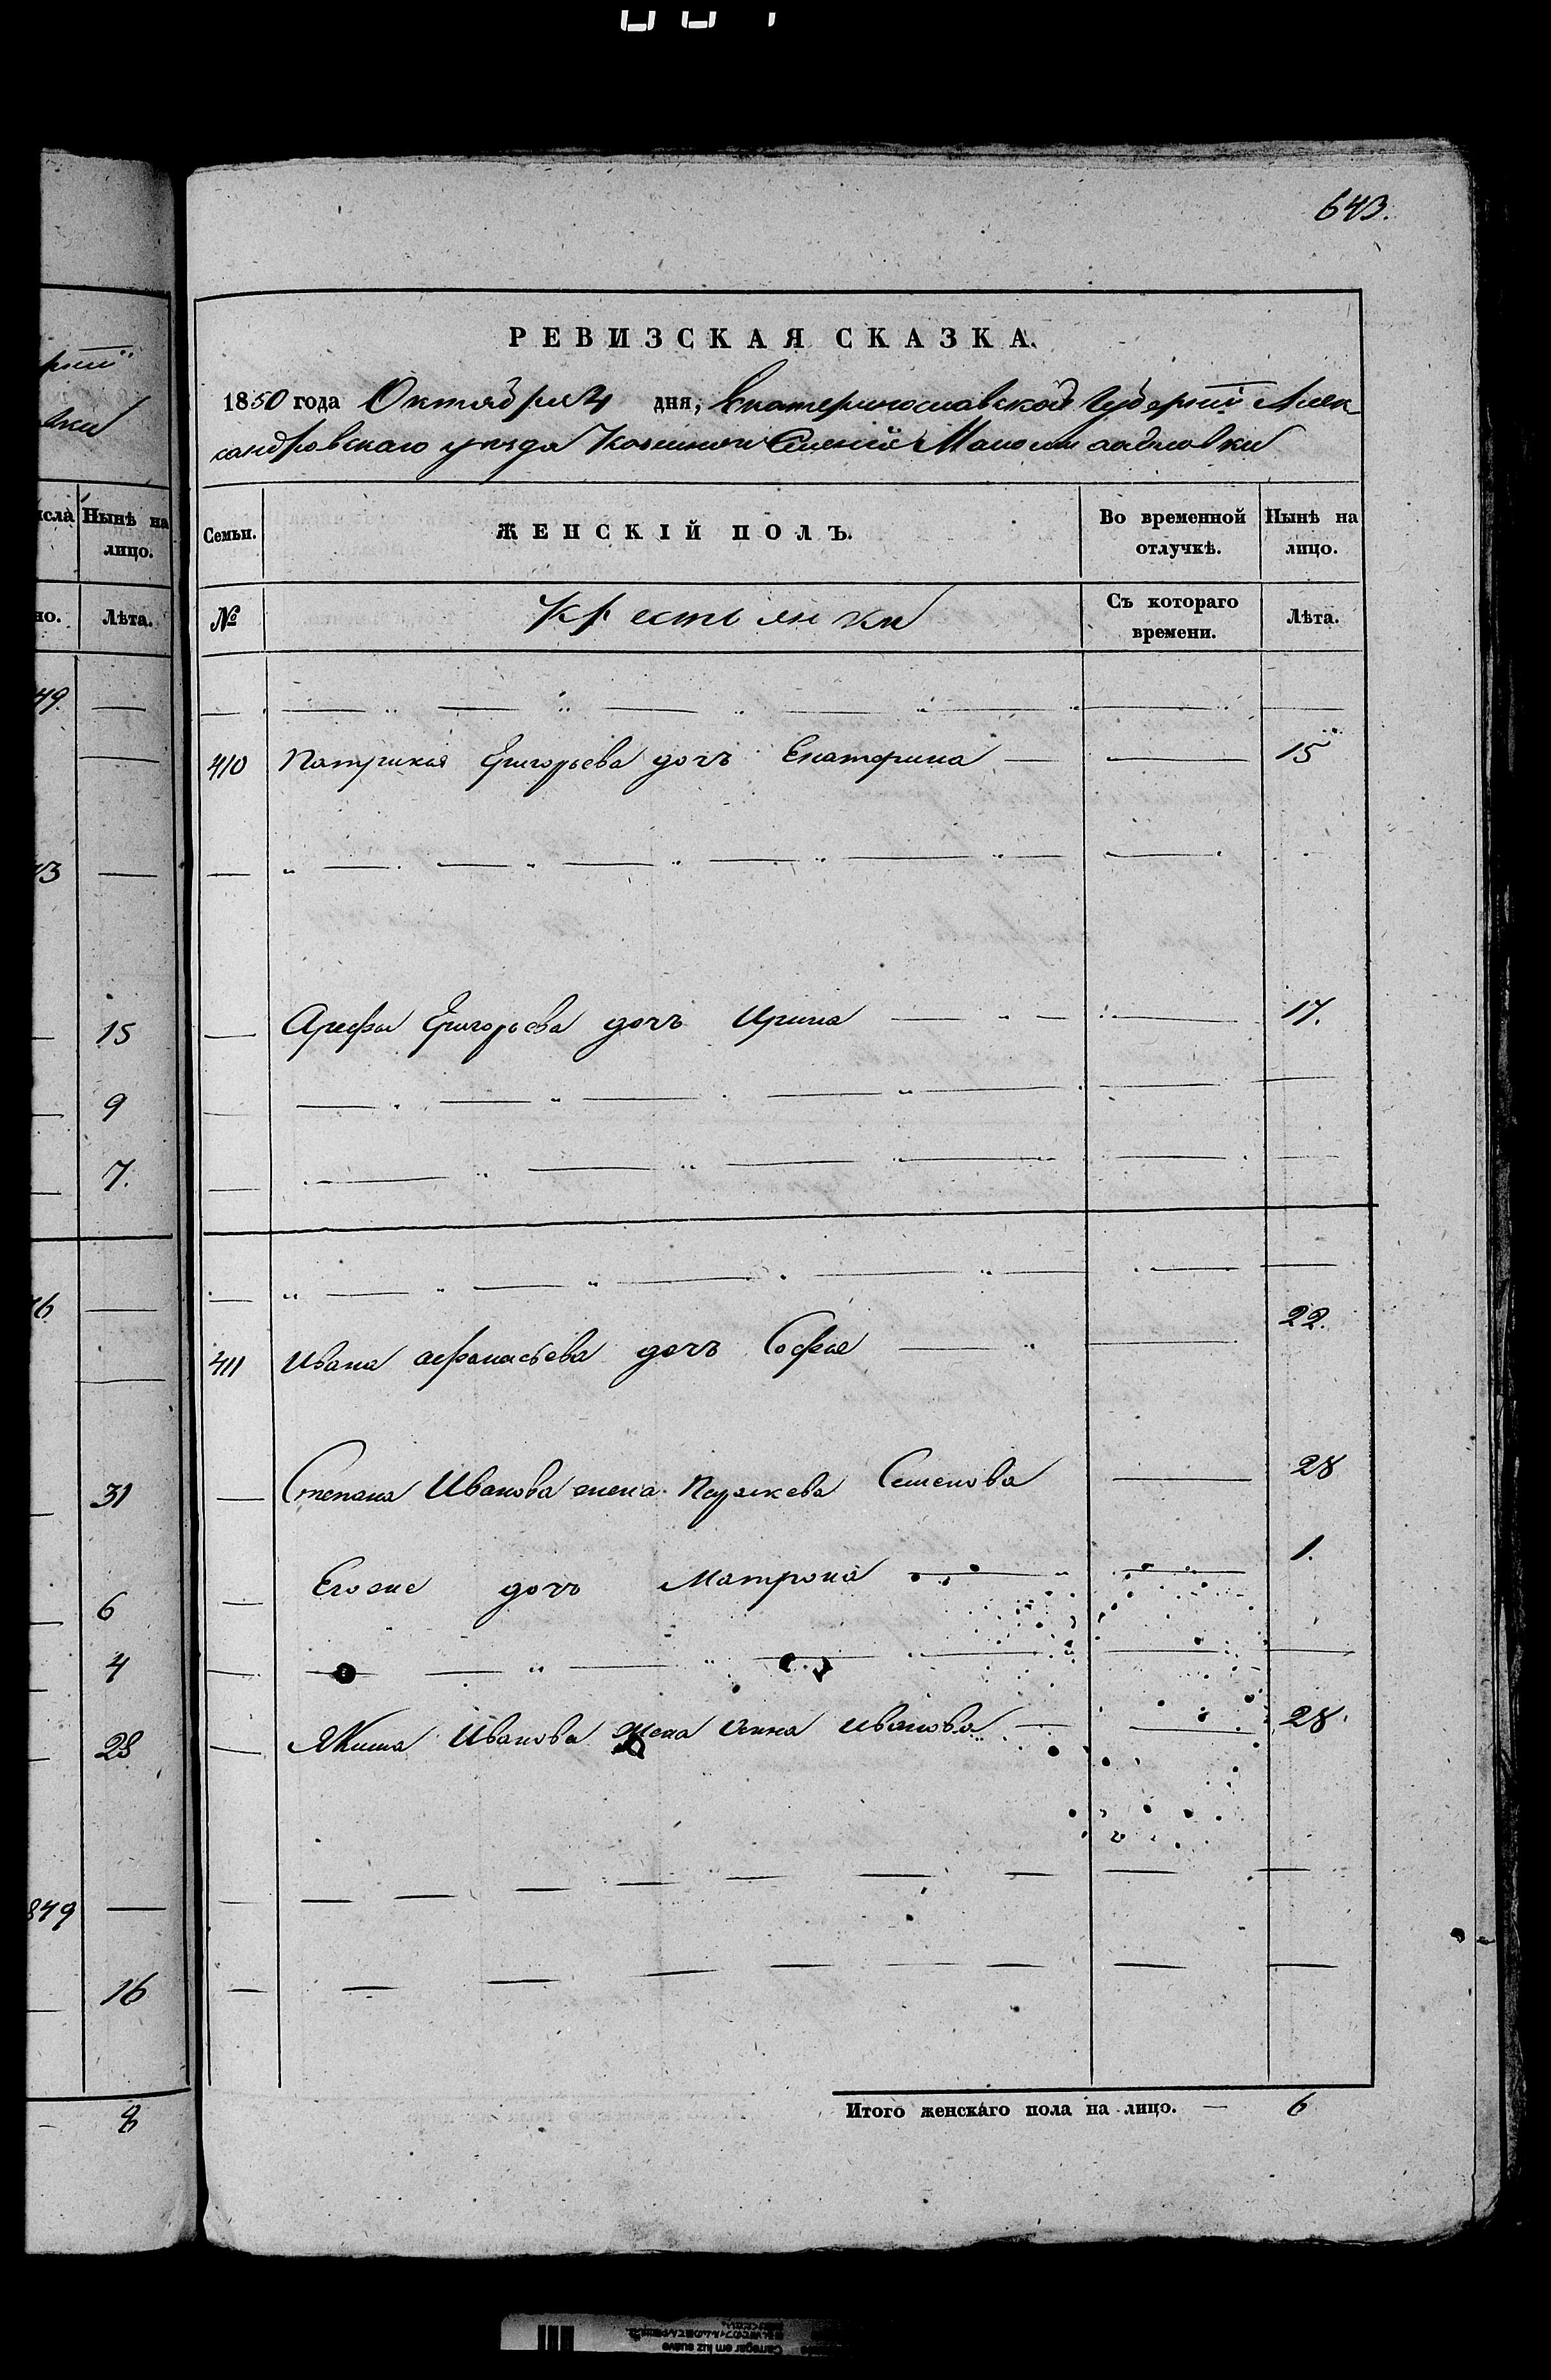 643.
РЕВИЗСКАЯ СКАЗКА.
1850 года Октября 4 дня, Екатеринославской Губернии Алек
сандровскаго уезда Казеннои Селенія
вки
сла Нынѣ на лицо.
но. Лѣта.
Семьи. ЖЕНСКІЙ ПОЛЪ. Во временной отлучкѣ. Нынѣ на лицо.
№ Крестьянки Съ котораго времени. Лѣта.
49
410 Патрикия Григорьева дочь Екатерина 15
73
15 Арефы Григорьева дочь Ирина 17.
9
7.
76
411 Ивана афанасьева дочь Софья 22.
31 Степана Иванова жена Параскева Семенова 28
6 Его же дочь Матрона 1.
4
28 Якима Иванова жена Анна иванова 28.
849
16
8 Итого женскаго пола на лицо. 6